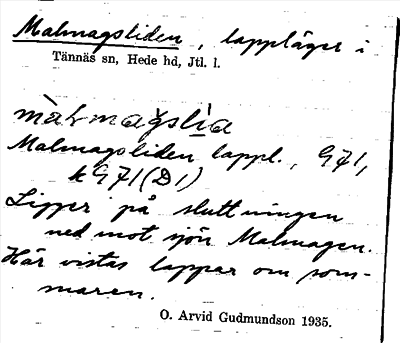 Malmagsliden, lappläger i
Tännäs sn, Hede hd, Jtl. l.
màLmagslìa
Malmagsliden lappl., G71,
k G71 (D1)
Ligger på sluttningen
ned mot sjön Malmagen.
Här vistas lappar om som-
maren.
O. Arvid Gudmundson 1935.